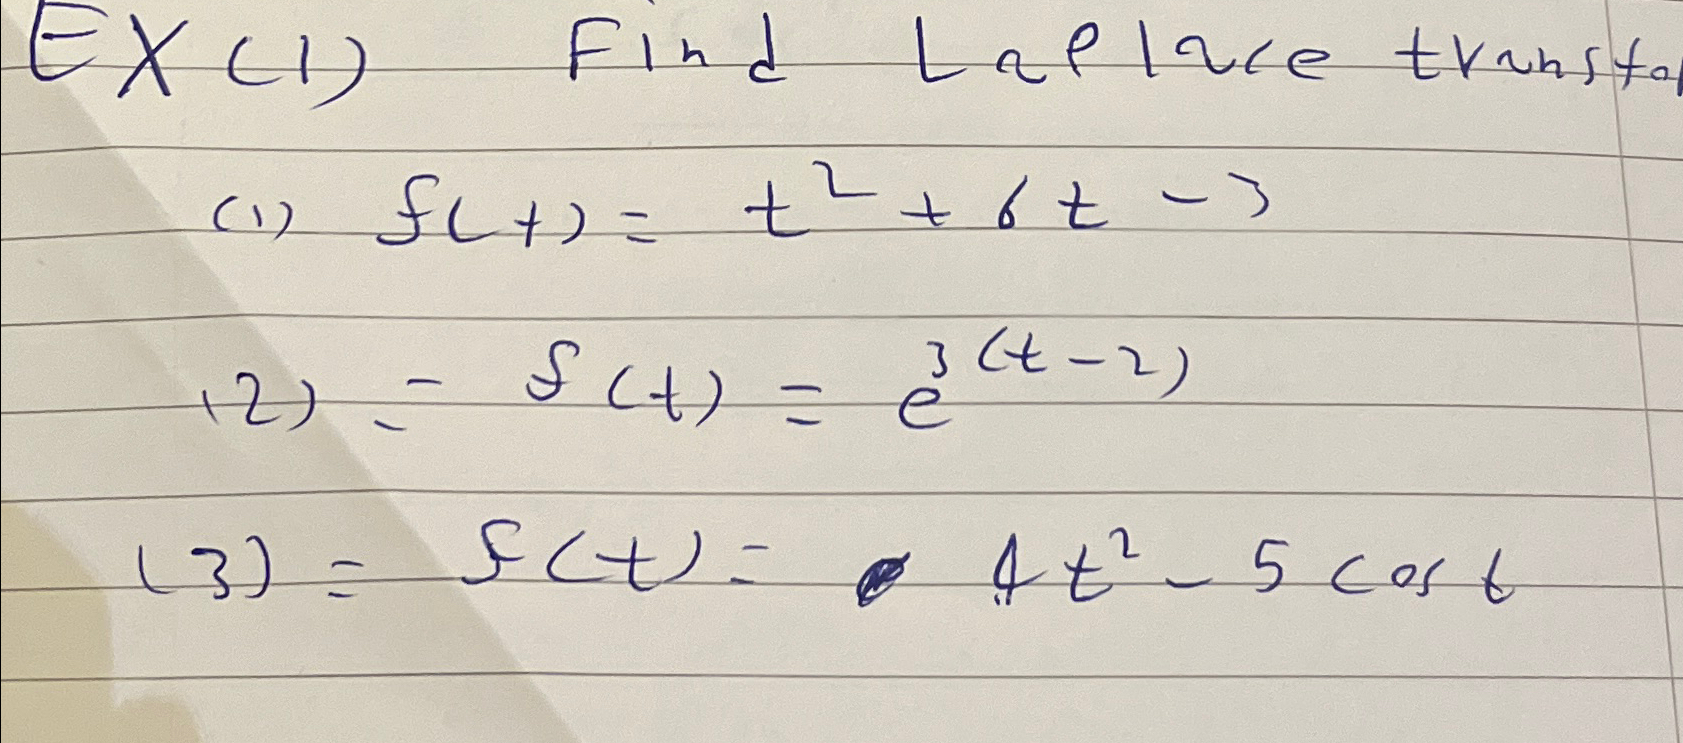 EX(1) Find Laplace transfo
(1) f(t) = t² + 6t - 3
(2) = f(t) = e^3(t-2)
(3) = f(t) = 4t² - 5 cos t